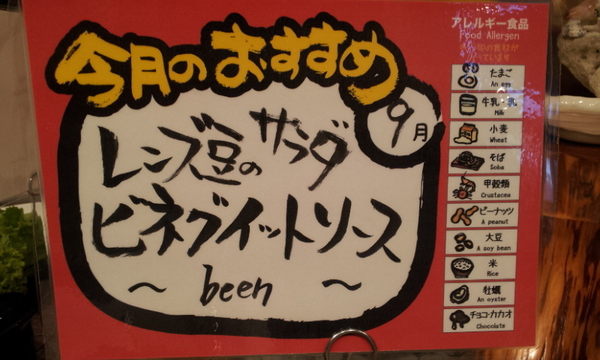 今月のおすすめ
9月
レンズ豆のサラダ
ビネグイットソース
～ been ～
アレルギー食品
Food Allergen
たまご
An egg
牛乳・乳
Milk
小麦
Wheat
そば
Soba
甲殻類
Crustacea
ピーナッツ
A peanut
大豆
A soy bean
米
Rice
牡蠣
An oyster
チョコ・カカオ
Chocolate